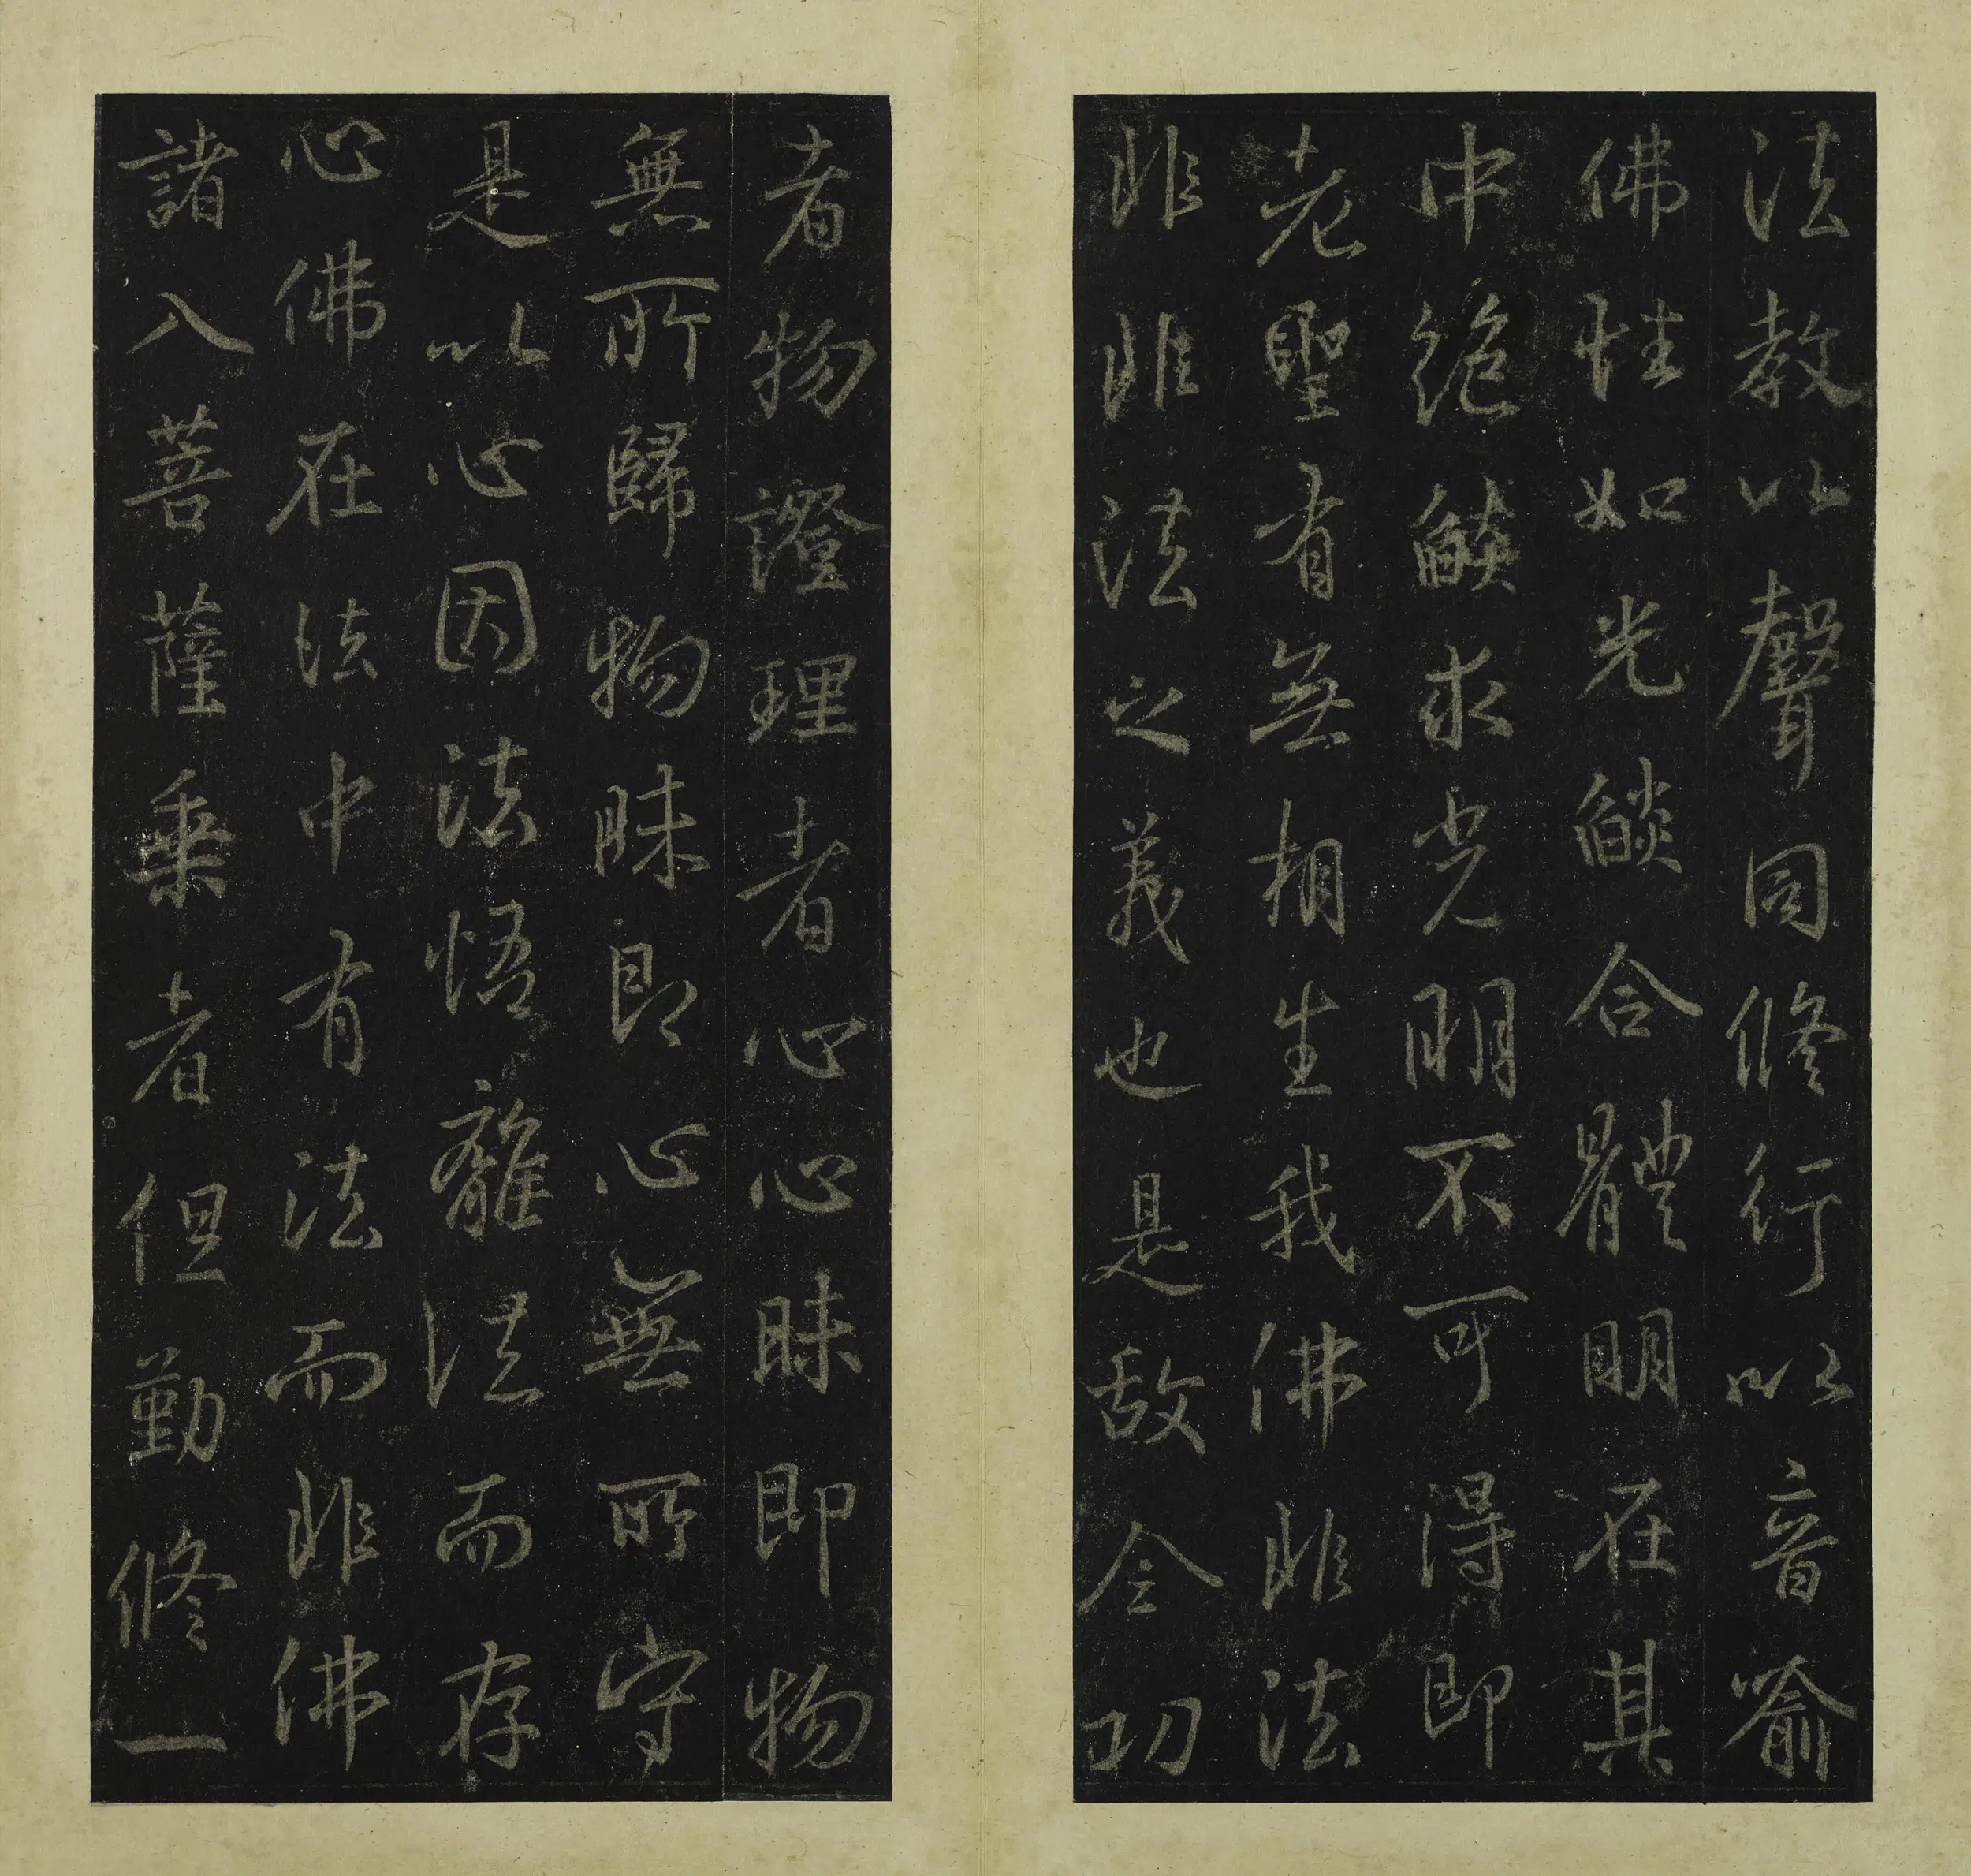 法教以聲同修行以音喻
佛性如光燄合體明在其
中絶燄求光明不可得即
老聖有無相生我佛非法
非非法之義也是故令功
者物證理者心心昧即物
無所歸物昧即心無所守
是以心因法悟離法而存
心佛在法中有法而非佛
諸八菩薩乘者但勤修一